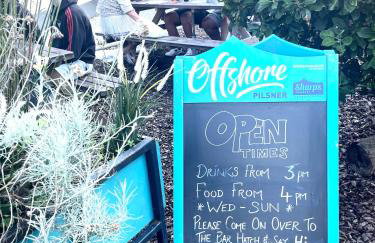 Offshore
PILSNER
Sharp's
OPEN
TIMES
DRINKS FROM 3 pm
FOOD FROM 4 pm
* WED - SUN *
PLEASE COME ON OVER TO
THE BAR HATCH & SAY HI